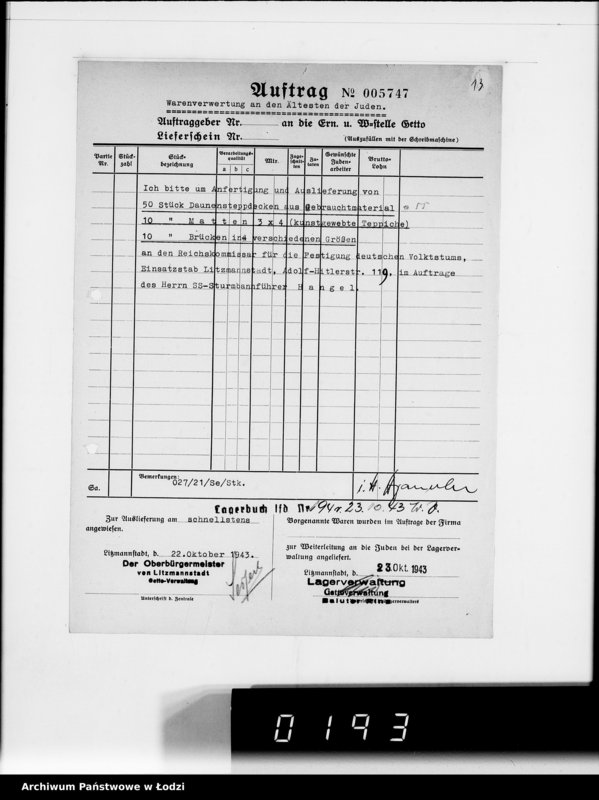 13
Auftrag № 005747
Warenverwertung an den Ältesten der Juden.
Auftraggeber Nr. an die Ern. u. W-stelle Getto
Lieferschein Nr. (Auszufüllen mit der Schreibmaschine)
Partie Nr. Stück-zahl Stück-bezeichnung Verarbeitungs-qualität a b c Mtr. Zuge-schnit-ten Zu-taten Gewünschte Juden-arbeiter Brutto-Lohn
Ich bitte um Anfertigung und Auslieferung von
50 Stück Daunensteppdecken aus Gebrauchtmaterial
10 " Matten 3x4 (kunstgewebte Teppiche)
10 " Brücken in verschiedenen Größen
an den Reichskommissar für die Festigung deutschen Volktstums,
Einsatzstab Litzmannstadt, Adolf-Hitlerstr. 119, im Auftrage
des Herrn SS-Sturmbannführer Hangel.
Sa.
Bemerkungen:
027/21/Se/Stk.
Lagerbuch lfd Nr. 194 v. 23.10.43
Zur Auslieferung am schnellstens
angewiesen.
Litzmannstadt, d. 22.Oktober 1943.
Der Oberbürgermeister
von Litzmannstadt
Getto-Verwaltung
Unterschrift d. Zentrale
Vorgenannte Waren wurden im Auftrage der Firma
zur Weiterleitung an die Juden bei der Lagerver-
waltung angeliefert.
Litzmannstadt, d. 23 Okt. 1943
Lagerverwaltung
Gettoverwaltung
Baluter Ring
0193
Archiwum Państwowe w Łodzi